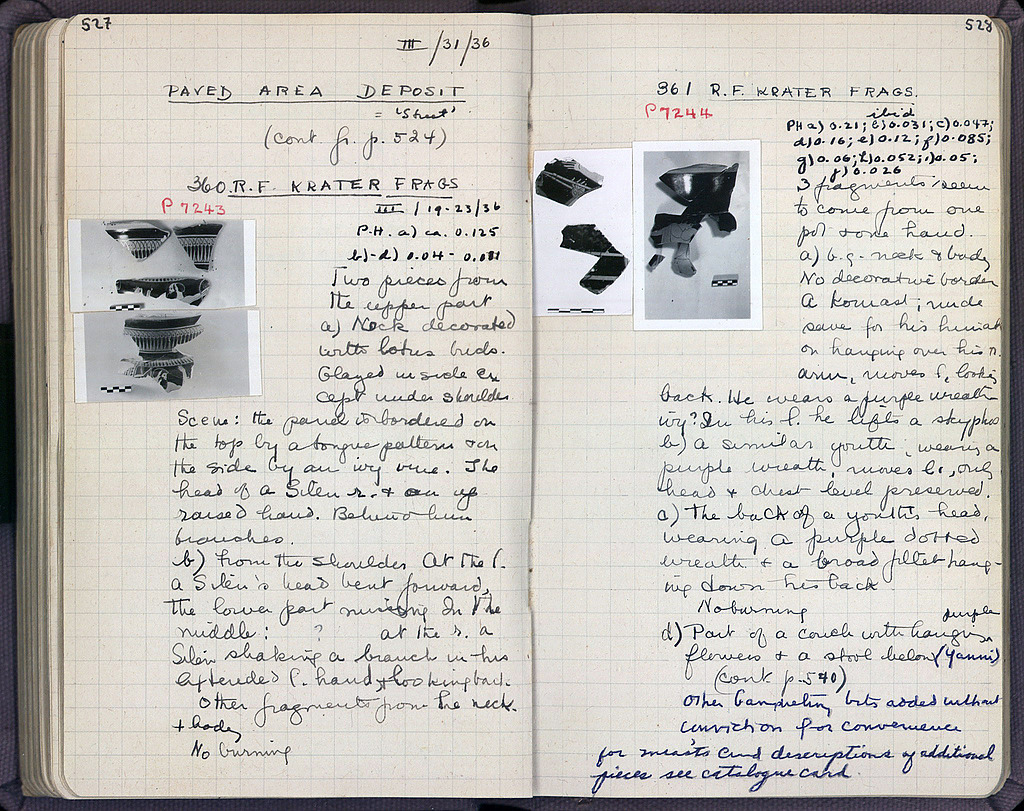 527
III/31/36
PAVED AREA DEPOSIT
= 'Street'
(cont. fr. p. 524)
360. R.F. KRATER FRAGS
P 7243
III / 19-23/36
P.H. a) ca. 0.125
b)-d) 0.04 -
Two pieces from
the upper part
a) Neck decorated
with lotus buds.
Glazed inside ex
cept under shoulder
Scene: the panel is bordered on
the top by a tongue pattern & on
the side by an ivy vine. The
head of a Silen r. &
raised hand. Behind him
branches.
b) From the shoulder At the l.
a Silen's head bent forward,
the lower part missing In the
middle: ? at the r. a
Silen shaking a branch in his
extended l. hand & looking back.
Other fragments from the neck
+ body
No burning
528
361 R.F. KRATER FRAGS.
P 7244
ibid
PH a) 0.21; b) 0.031; c) 0.047;
d) 0.16; e) 0.12; f) 0.085;
g) 0.06; h) 0.052; i) 0.05;
j) 0.026
3 fragments seem
to come from one
pot & one hand.
a) b.g. neck & body
No decorative border
A komast; nude
save for his himati
on hanging over his r.
arm, moves l, looking
back. He wears a purple wreath
ivy? In his l. he lifts a skyphos
b) a similar youth, wearing a
purple wreath, moves l., only
head & chest level preserved.
c) The back of a youth's head,
wearing a purple dotted
wreath & a broad fillet hang-
ing down his back
No burning
purple
d) Part of a couch with hanging
flowers & a stool below (Yanni)
(cont p. 540)
Other banqueting bits added without
conviction for convenience
for meas'ts and descriptions of additional
pieces see catalogue card.